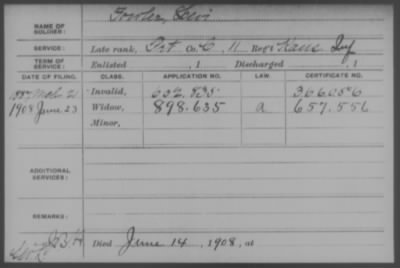 NAME OF SOLDIER: Fowler, Levi
SERVICE: Late rank, Pvt Co. C, 11 Reg't Kans Inf
TERM OF SERVICE: Enlisted , 1 Discharged , 1
DATE OF FILING. CLASS. APPLICATION NO. LAW. CERTIFICATE NO.
1887 Mch 21 Invalid, 602.835 366056
1908 June 23 Widow, 898.635 a 657.556
Minor,
ADDITIONAL SERVICES:
REMARKS:
Died June 14, 1908, at